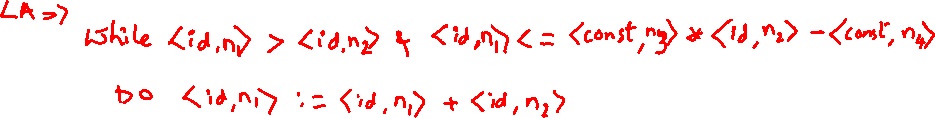 LA => while <id,n₁> > <id,n₂> & <id,n₁> <= <const,n₃> * <id,n₂> - <const,n₄>
DO <id,n₁> := <id,n₁> + <id,n₂>